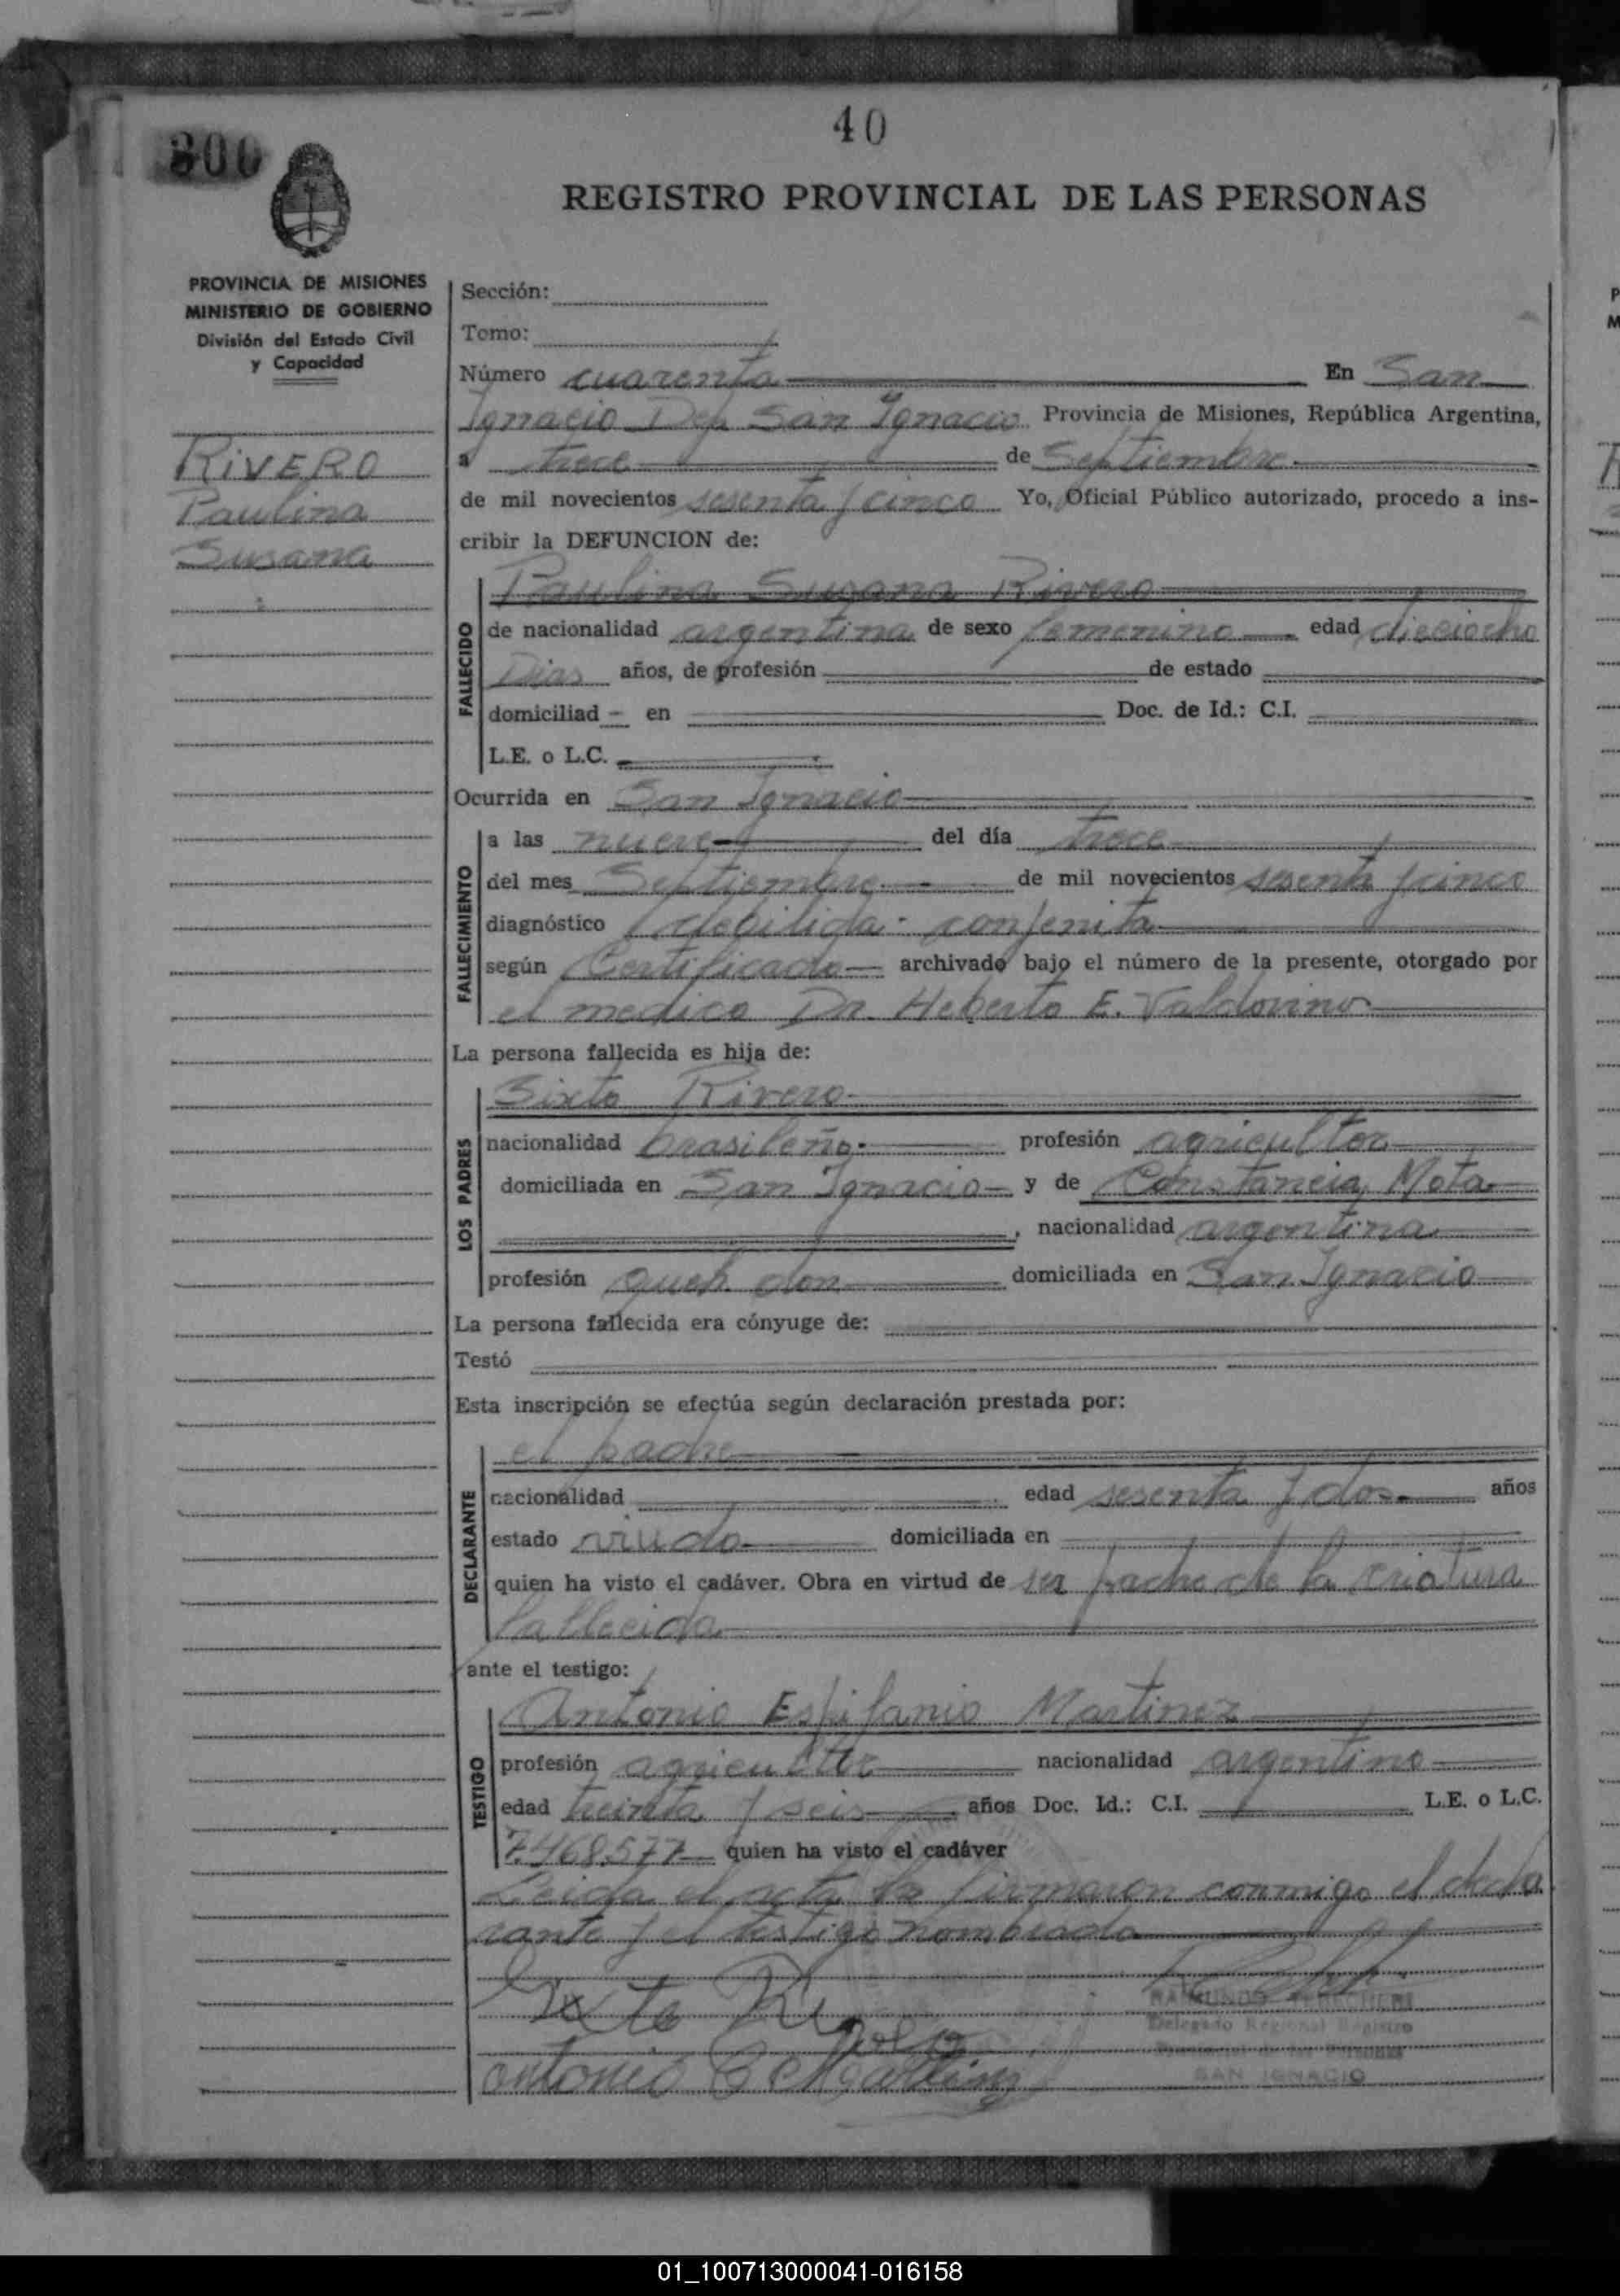 40
300
REGISTRO PROVINCIAL DE LAS PERSONAS
PROVINCIA DE MISIONES
MINISTERIO DE GOBIERNO
División del Estado Civil
y Capacidad
RIVERO
Paulina
Susana
Sección:
Tomo:
Número cuarenta En San
Ignacio Dep San Ignacio Provincia de Misiones, República Argentina,
a trece de Septiembre
de mil novecientos sesenta y cinco Yo, Oficial Público autorizado, procedo a ins-
cribir la DEFUNCION de:
FALLECIDO
Paulina Susana Rivero
de nacionalidad argentina de sexo femenino edad dieciocho
Dias años, de profesión de estado
domiciliad - en Doc. de Id.: C.I.
L.E. o L.C.
Ocurrida en San Ignacio
FALLECIMIENTO
a las nueve del día trece
del mes Septiembre de mil novecientos sesenta y cinco
diagnóstico debilida conjenita
según Certificado archivado bajo el número de la presente, otorgado por
el medico Dr. Heberto E. Valdovinos
La persona fallecida es hija de:
LOS PADRES
Sixto Rivero
nacionalidad brasileño profesión agricultor
domiciliada en San Ignacio y de Constancia Mota
, nacionalidad argentina
profesión queh. dom domiciliada en San Ignacio
La persona fallecida era cónyuge de:
Testó
Esta inscripción se efectúa según declaración prestada por:
DECLARANTE
el padre
nacionalidad edad sesenta y dos años
estado viudo domiciliada en
quien ha visto el cadáver. Obra en virtud de ser padre de la criatura
fallecida
ante el testigo:
TESTIGO
Antonio Espifanio Martinez
profesión agricultor nacionalidad argentino
edad treinta y seis años Doc. Id.: C.I. L.E. o L.C.
7.468.577 quien ha visto el cadáver
Leida el acta la firmaron conmigo el decla
rante y el testigo nombrado
Sixto Rivero
RAIMUNDO
Delegado Regional Registro
Provincial de las Personas
SAN IGNACIO
Antonio E Martinez
01_100713000041-016158